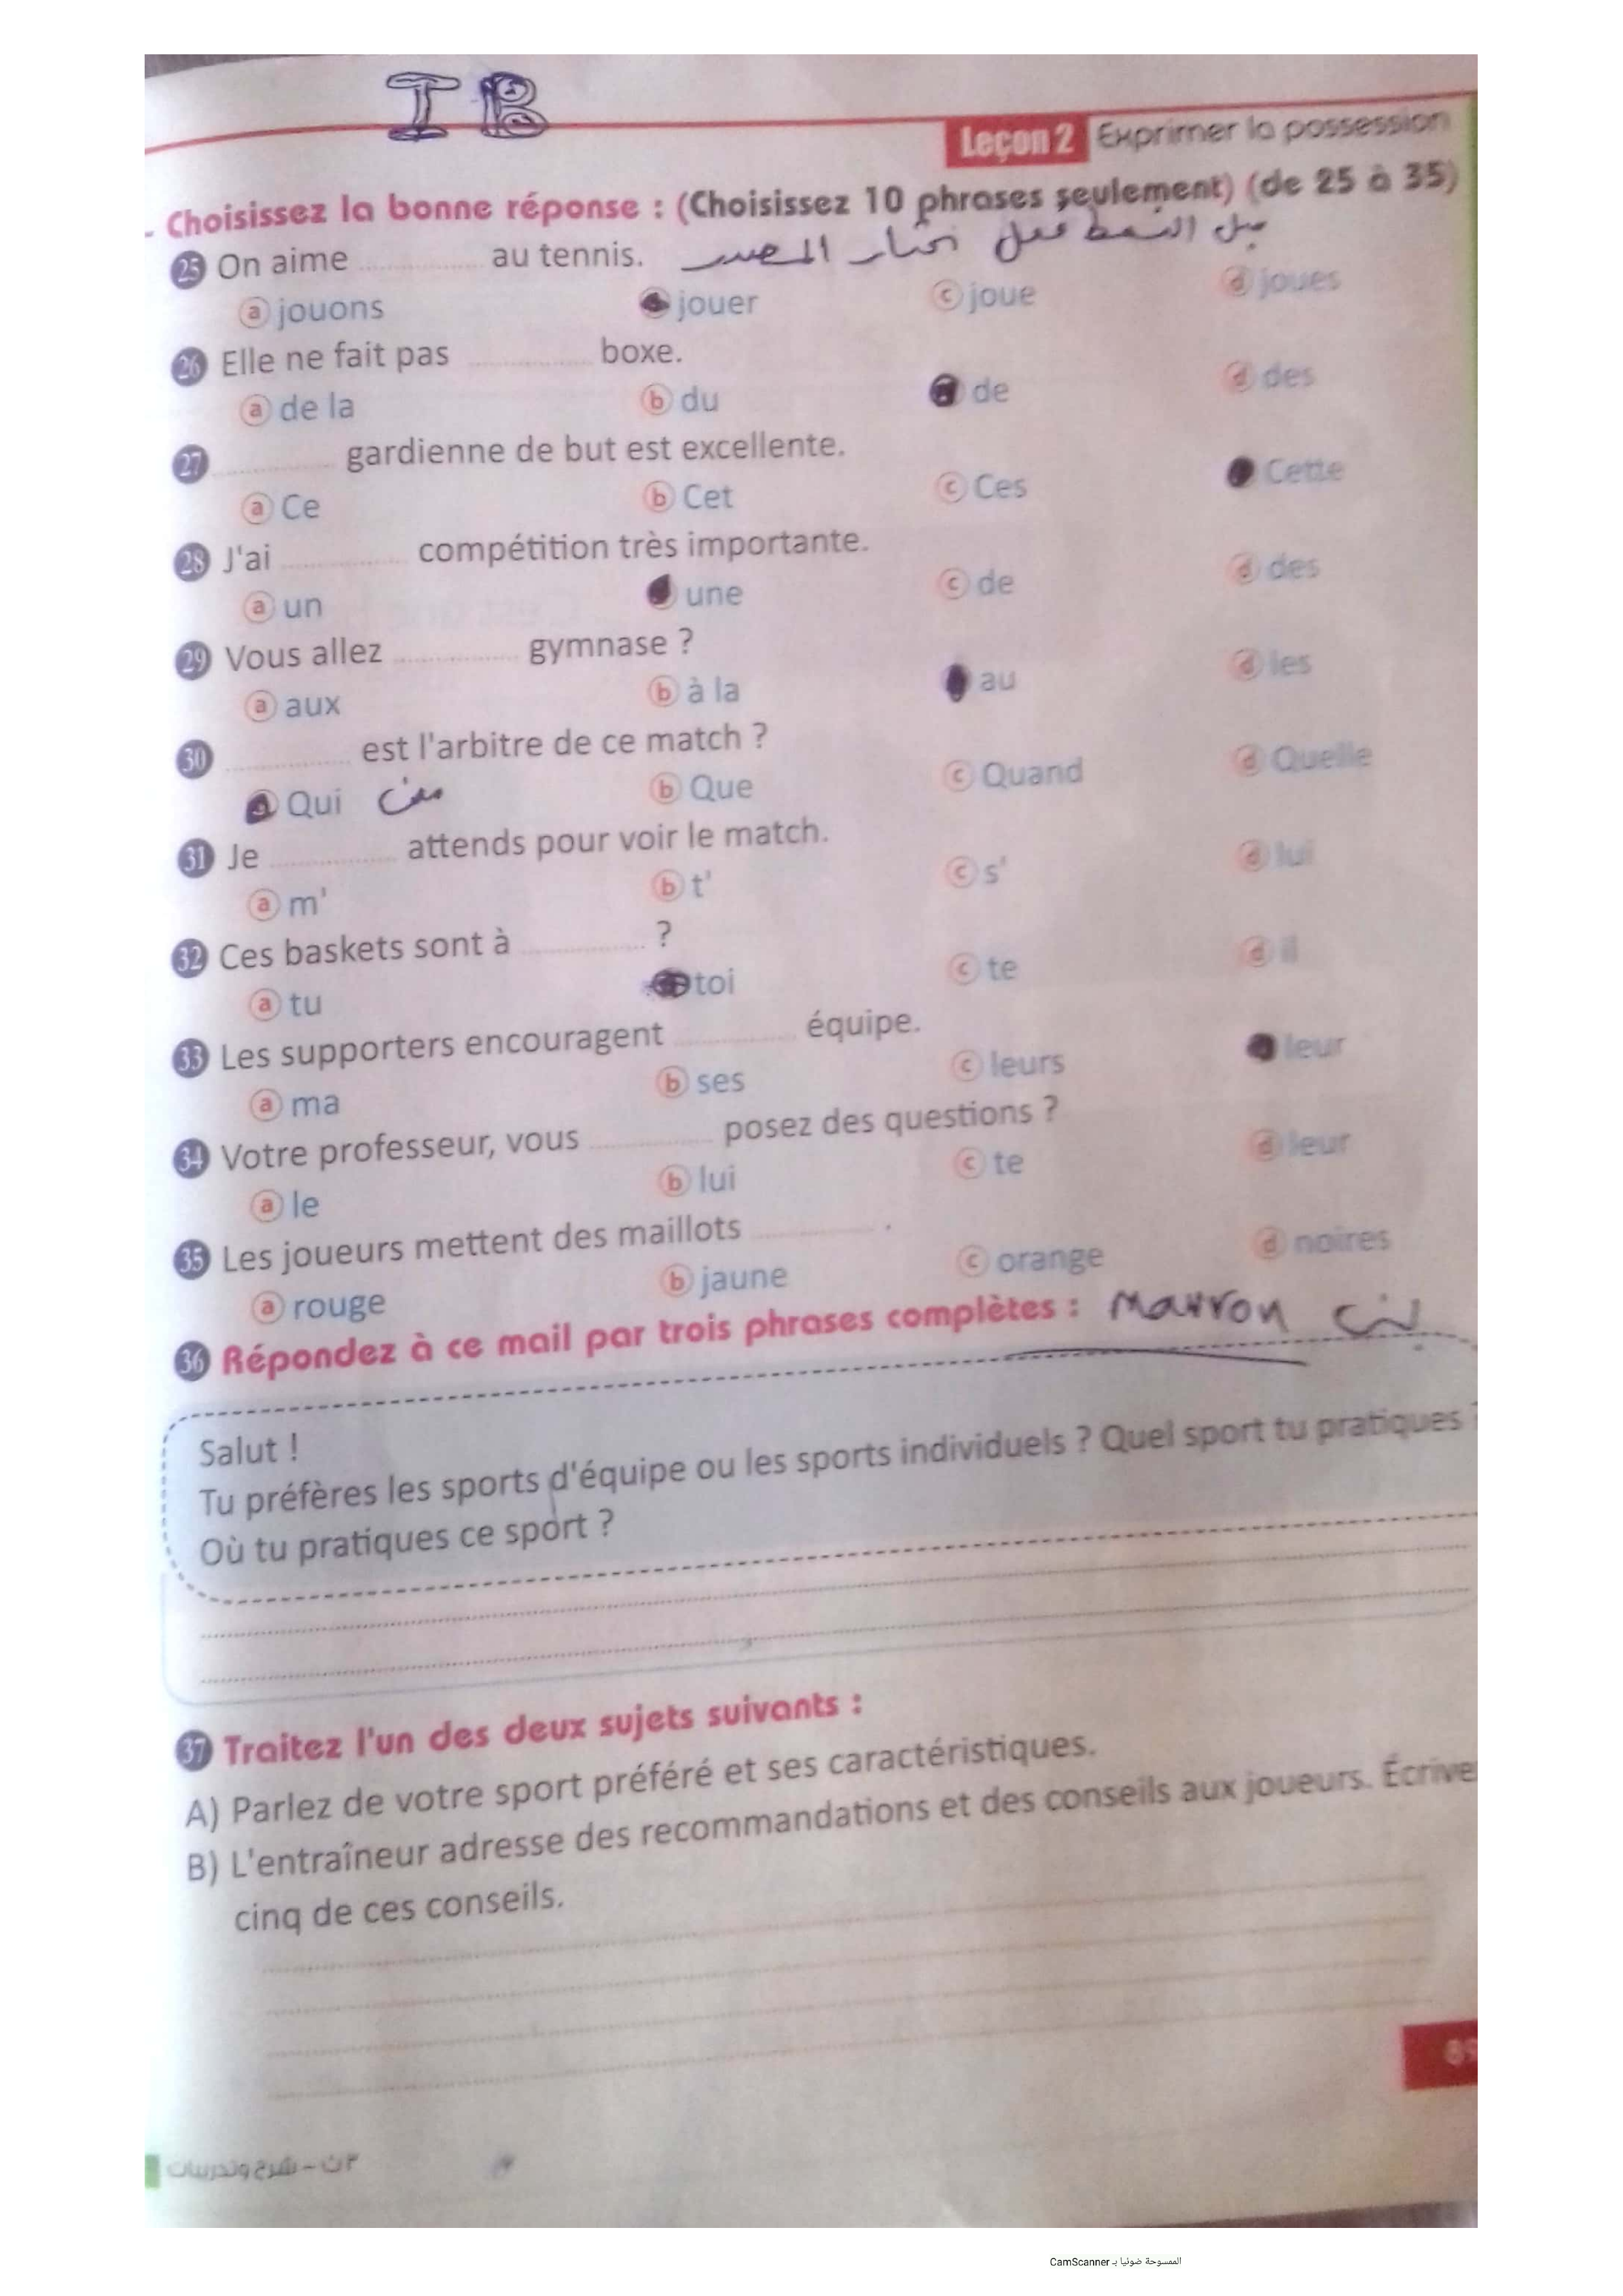 IB
Leçon 2 Exprimer la possession
- Choisissez la bonne réponse : (Choisissez 10 phrases seulement) (de 25 à 35)
25 On aime ............ au tennis.
a jouons jouer c joue d joues
26 Elle ne fait pas ............ boxe.
a de la b du de d des
27 ............ gardienne de but est excellente.
a Ce b Cet c Ces Cette
28 J'ai ............ compétition très importante.
a un une c de d des
29 Vous allez ............ gymnase ?
a aux b à la au d les
30 ............ est l'arbitre de ce match ?
a Qui مين b Que c Quand d Quelle
31 Je ............ attends pour voir le match.
a m' b t' c s' d lui
32 Ces baskets sont à ............ ?
a tu toi c te d il
33 Les supporters encouragent ............ équipe.
a ma b ses c leurs leur
34 Votre professeur, vous ............ posez des questions ?
a le b lui c te d leur
35 Les joueurs mettent des maillots ............ .
a rouge b jaune c orange d noires
36 Répondez à ce mail par trois phrases complètes : marron بني
Salut !
Tu préfères les sports d'équipe ou les sports individuels ? Quel sport tu pratiques ?
Où tu pratiques ce sport ?
37 Traitez l'un des deux sujets suivants :
A) Parlez de votre sport préféré et ses caractéristiques.
B) L'entraîneur adresse des recommandations et des conseils aux joueurs. Écrive
cinq de ces conseils.
89
٣ ث - شرح وتدريبات
الممسوحة ضوئيا بـ CamScanner